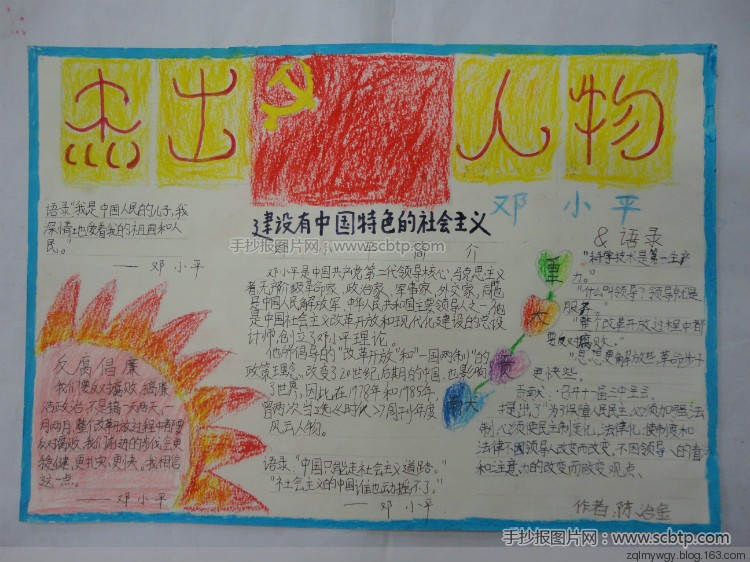 杰出人物
邓小平
语录"我是中国人民的儿子,我
深情地爱着我的祖国和人
民。"
——邓小平
建设有中国特色的社会主义
手抄报图片网 - www.scbtp.com
简介
邓小平是中国共产党第二代领导核心,马克思主义
者,无产阶级革命家、政治家、军事家、外交家,同志
是中国人民解放军、中华人民共和国主要领导人之一,他
是中国社会主义改革开放和现代化建设的总设
计师,创立了邓小平理论。
他所倡导的"改革开放"和"一国两制"的
政策理念,改变了20世纪后期的中国,也影响
了世界,因此在1978年和1985年,
曾两次当选《时代》周刊年度
风云人物。
语录:"中国只能走社会主义道路。"
"社会主义的中国谁也动摇不了。"
——邓小平
反腐倡廉
我们要反对腐败,搞廉
洁政治,不是搞一天两天、一
月两月,整个改革开放过程中都要
反对腐败,我们前进的步伐会更
稳健,更扎实,更快。我相信
这一点。
——邓小平
重
大
贡
献
&语录
"科学技术是第一生产
力。"
"什么叫领导?领导就是
服务。"
"整个改革开放过程中都
要反对腐败。"
"思想更解放些,革命步子
更快些。"
贡献:召开十一届三中全会,
提出了"为了保障人民民主,必须加强法
制,必须使民主制度化、法律化,使制度和
法律不因领导人改变而改变,不因领导人的看法
和注意力的改变而改变"观点。
作者:陈治金
手抄报图片网 - www.scbtp.com
zqlmywgy.blog.163.com